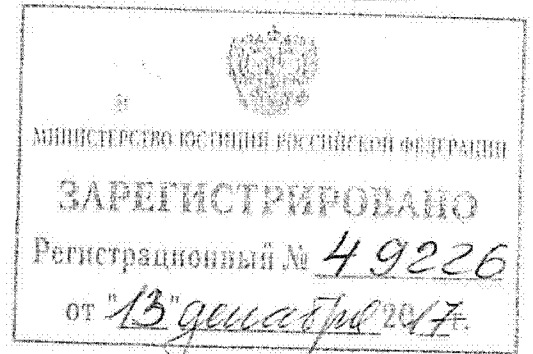 МИНИСТЕРСТВО ЮСТИЦИИ РОССИЙСКОЙ ФЕДЕРАЦИИ
ЗАРЕГИСТРИРОВАНО
Регистрационный № 49226
от "13" декабря 2017г.